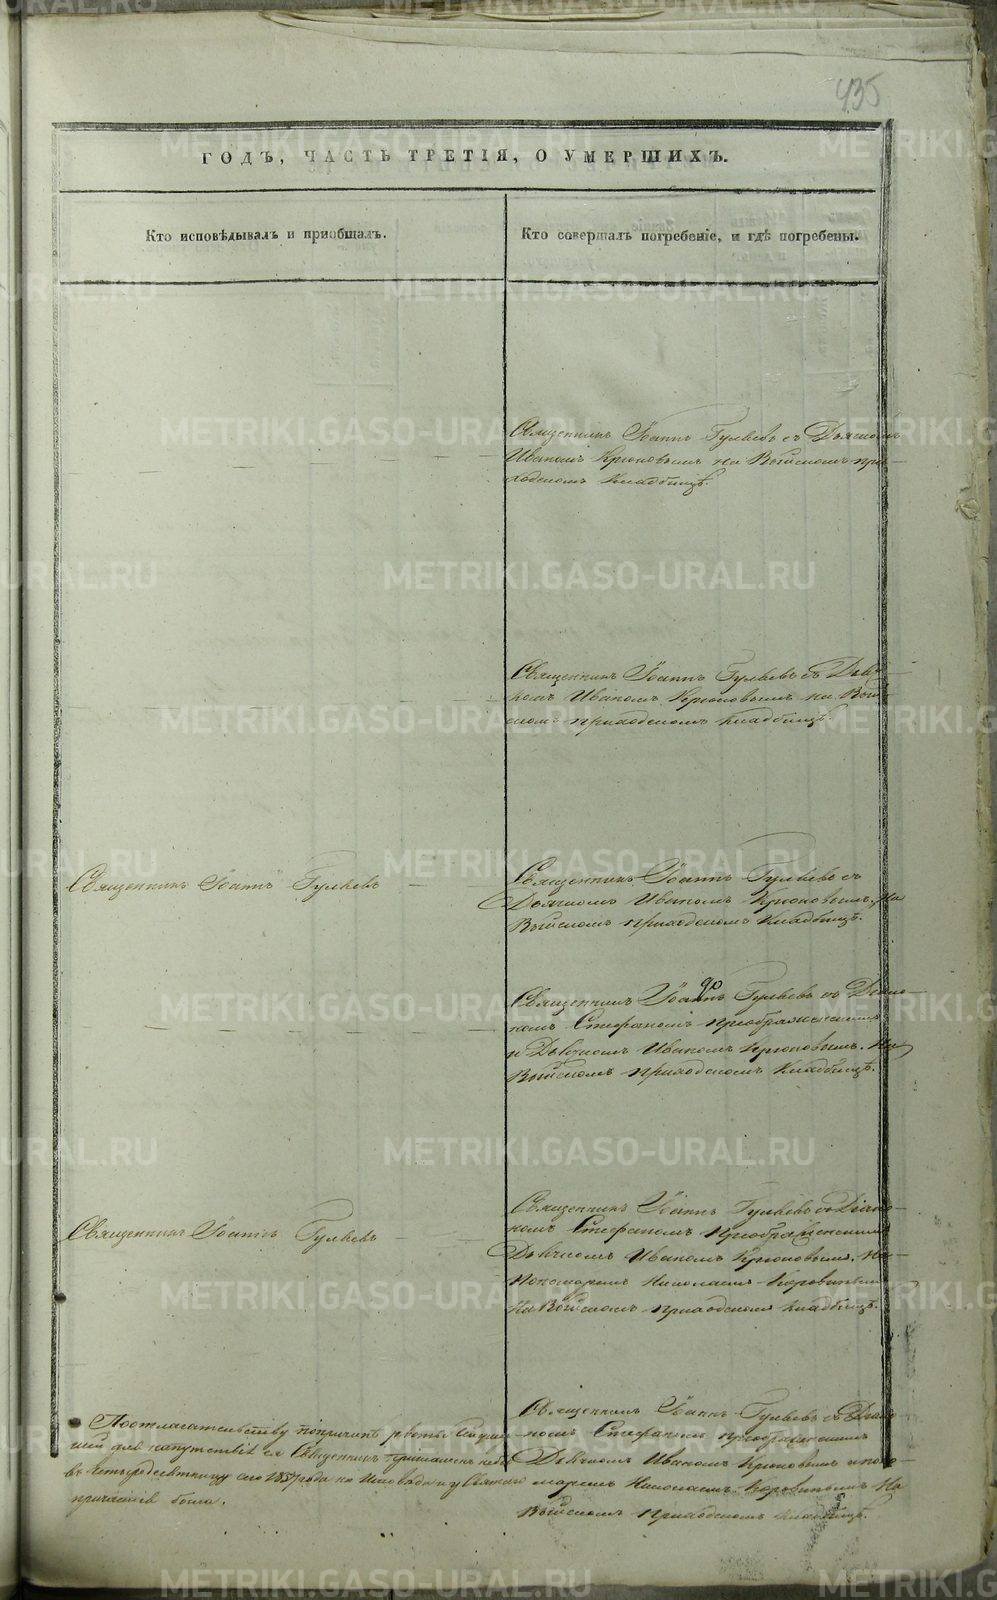 435
ГОДЪ, ЧАСТЬ ТРЕТІЯ, О УМЕРШИХЪ.
Кто исповѣдывалъ и пріобщалъ.
Кто совершалъ погребеніе, и гдѣ погребены.
Священникъ Іоаннъ Гуляевъ съ Дьячкомъ
Иваномъ Крюковымъ на при-
ходскомъ кладбищѣ.
Священникъ Іоаннъ Гуляевъ съ Дьяч-
комъ Иваномъ Крюковымъ на
приходскомъ кладбищѣ.
Священникъ Іоаннъ Гуляевъ
Священникъ Іоаннъ Гуляевъ съ
Дьячкомъ Иваномъ Крюковымъ. на
приходскомъ кладбищѣ.
Священникъ Іоаннъ Гуляевъ съ Діако-
номъ Стефаномъ Преображенскимъ
и Дьячкомъ Иваномъ Крюковымъ. На
приходскомъ кладбищѣ.
Священникъ Іоаннъ Гуляевъ
Священникъ Іоаннъ Гуляевъ съ Діако-
номъ Стефаномъ Преображенскимъ
Дьячкомъ Иваномъ Крюковымъ.
Пономаремъ Николаемъ
на приходскомъ кладбищѣ.
для напутствія Священникъ приглашенъ
въ сего 1857 года на исповѣди и у Святаго
причастія была.
Священникъ Іоаннъ Гуляевъ съ Діако-
номъ Стефаномъ Преображенскимъ
Дьячкомъ Иваномъ Крюковымъ и поно-
маремъ Николаемъ на
приходскомъ кладбищѣ.
METRIKI.GASO-URAL.RU